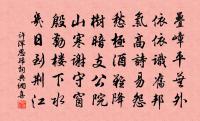 疊嶂平蕪外
依依識舊邦
氣高詩易怨
愁極酒難降
樹暗支公院
山寒謝守窗
殷勤樓下水
幾日到荊江
許渾思歸詞典網